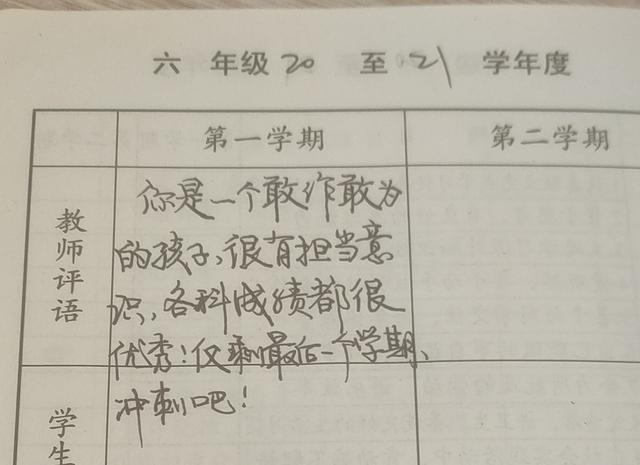 六 年级 20 至 21 学年度
第一学期 第二学期
教师评语
你是一个敢作敢为
的孩子,很有担当意
识,各科成绩都很
优秀!仅剩最后一个学期、
冲刺吧!
学生